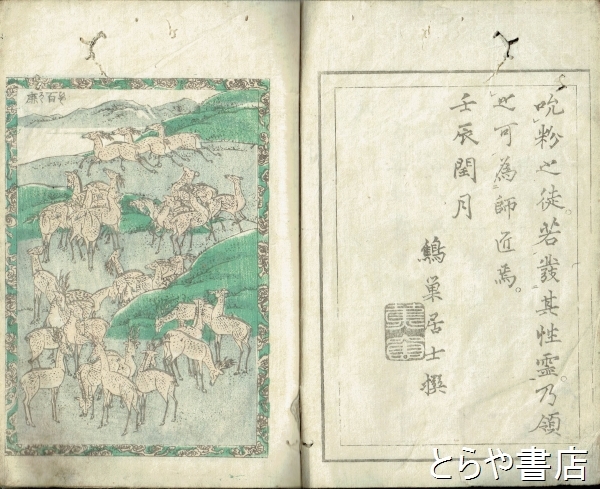 吮粉之徒。若發其性靈。乃領
之可為師匠焉。
壬辰閏月
鷦巢居士撰
とらや書店